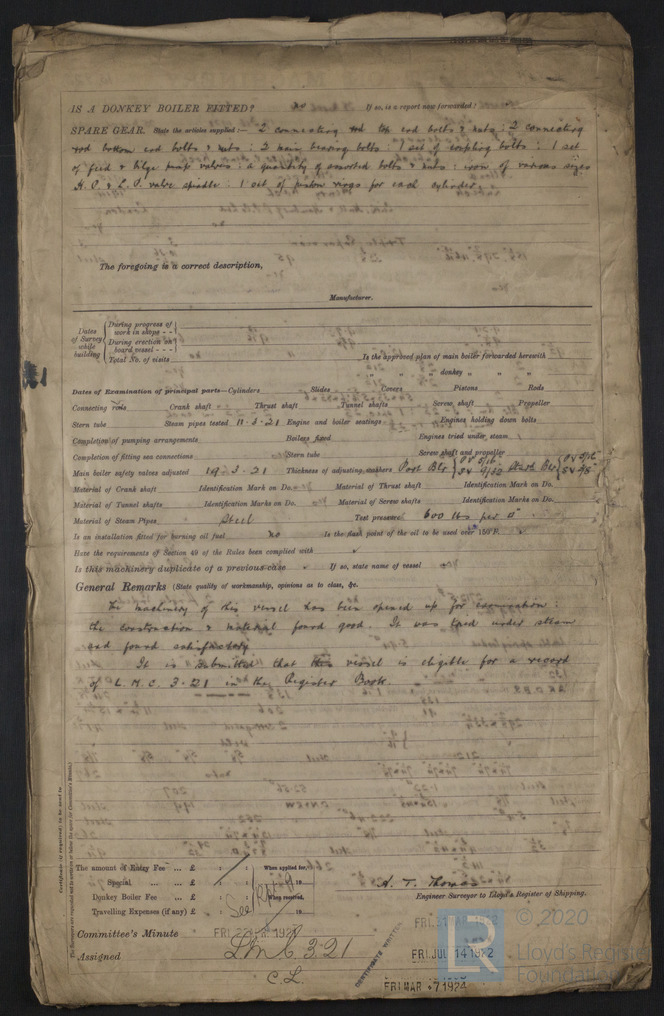 IS A DONKEY BOILER FITTED? no If so, is a report now forwarded?
SPARE GEAR. State the articles supplied:— 2 connecting rod top end bolts & nuts : 2 connecting
rod bottom end bolts & nuts : 2 main bearing bolts : 1 set of coupling bolts : 1 set
of feed & bilge pump valves : a quantity of assorted bolts & nuts : iron of various sizes
H.P. & L.P. valve spindle : 1 set of piston rings for each cylinder
The foregoing is a correct description,
Manufacturer.
Dates of Survey while building
During progress of work in shops - -
During erection on board vessel - - -
Total No. of visits
Is the approved plan of main boiler forwarded herewith
" " " donkey " " "
Dates of Examination of principal parts—Cylinders Slides Covers Pistons Rods
Connecting rods Crank shaft Thrust shaft Tunnel shafts Screw shaft Propeller
Stern tube Steam pipes tested 11.3.21 Engine and boiler seatings Engines holding down bolts
Completion of pumping arrangements Boilers fixed Engines tried under steam
Completion of fitting sea connections Stern tube Screw shaft and propeller
Main boiler safety valves adjusted 19.3.21 Thickness of adjusting washers Port Blr Starb Blr
Material of Crank shaft Identification Mark on Do. Material of Thrust shaft Identification Mark on Do.
Material of Tunnel shafts Identification Marks on Do. Material of Screw shafts Identification Marks on Do.
Material of Steam Pipes Steel Test pressure 600 lbs per □"
Is an installation fitted for burning oil fuel no Is the flash point of the oil to be used over 150°F.
Have the requirements of Section 49 of the Rules been complied with
Is this machinery duplicate of a previous case If so, state name of vessel
General Remarks (State quality of workmanship, opinions as to class, &c.
The machinery of this vessel has been opened up for examination :
the construction & material found good. It was tried under steam
and found satisfactory.
It is submitted that this vessel is eligible for a record
of L.M.C. 3.21 in the Register Book.
Certificate (if required) to be sent to
The amount of Entry Fee ... £ : : When applied for,
Special ... ... £ : : 19
Donkey Boiler Fee ... £ : : When received,
Travelling Expenses (if any) £ : : 19
See Rpt 9
A. T. Thomas
Engineer Surveyor to Lloyd's Register of Shipping.
Committee's Minute
Assigned LMC 3.21
C.L.
FRI. JUL 14 1922
FRI MAR 7 1924
CERTIFICATE WRITTEN
LR © 2020
Lloyd's Register
Foundation